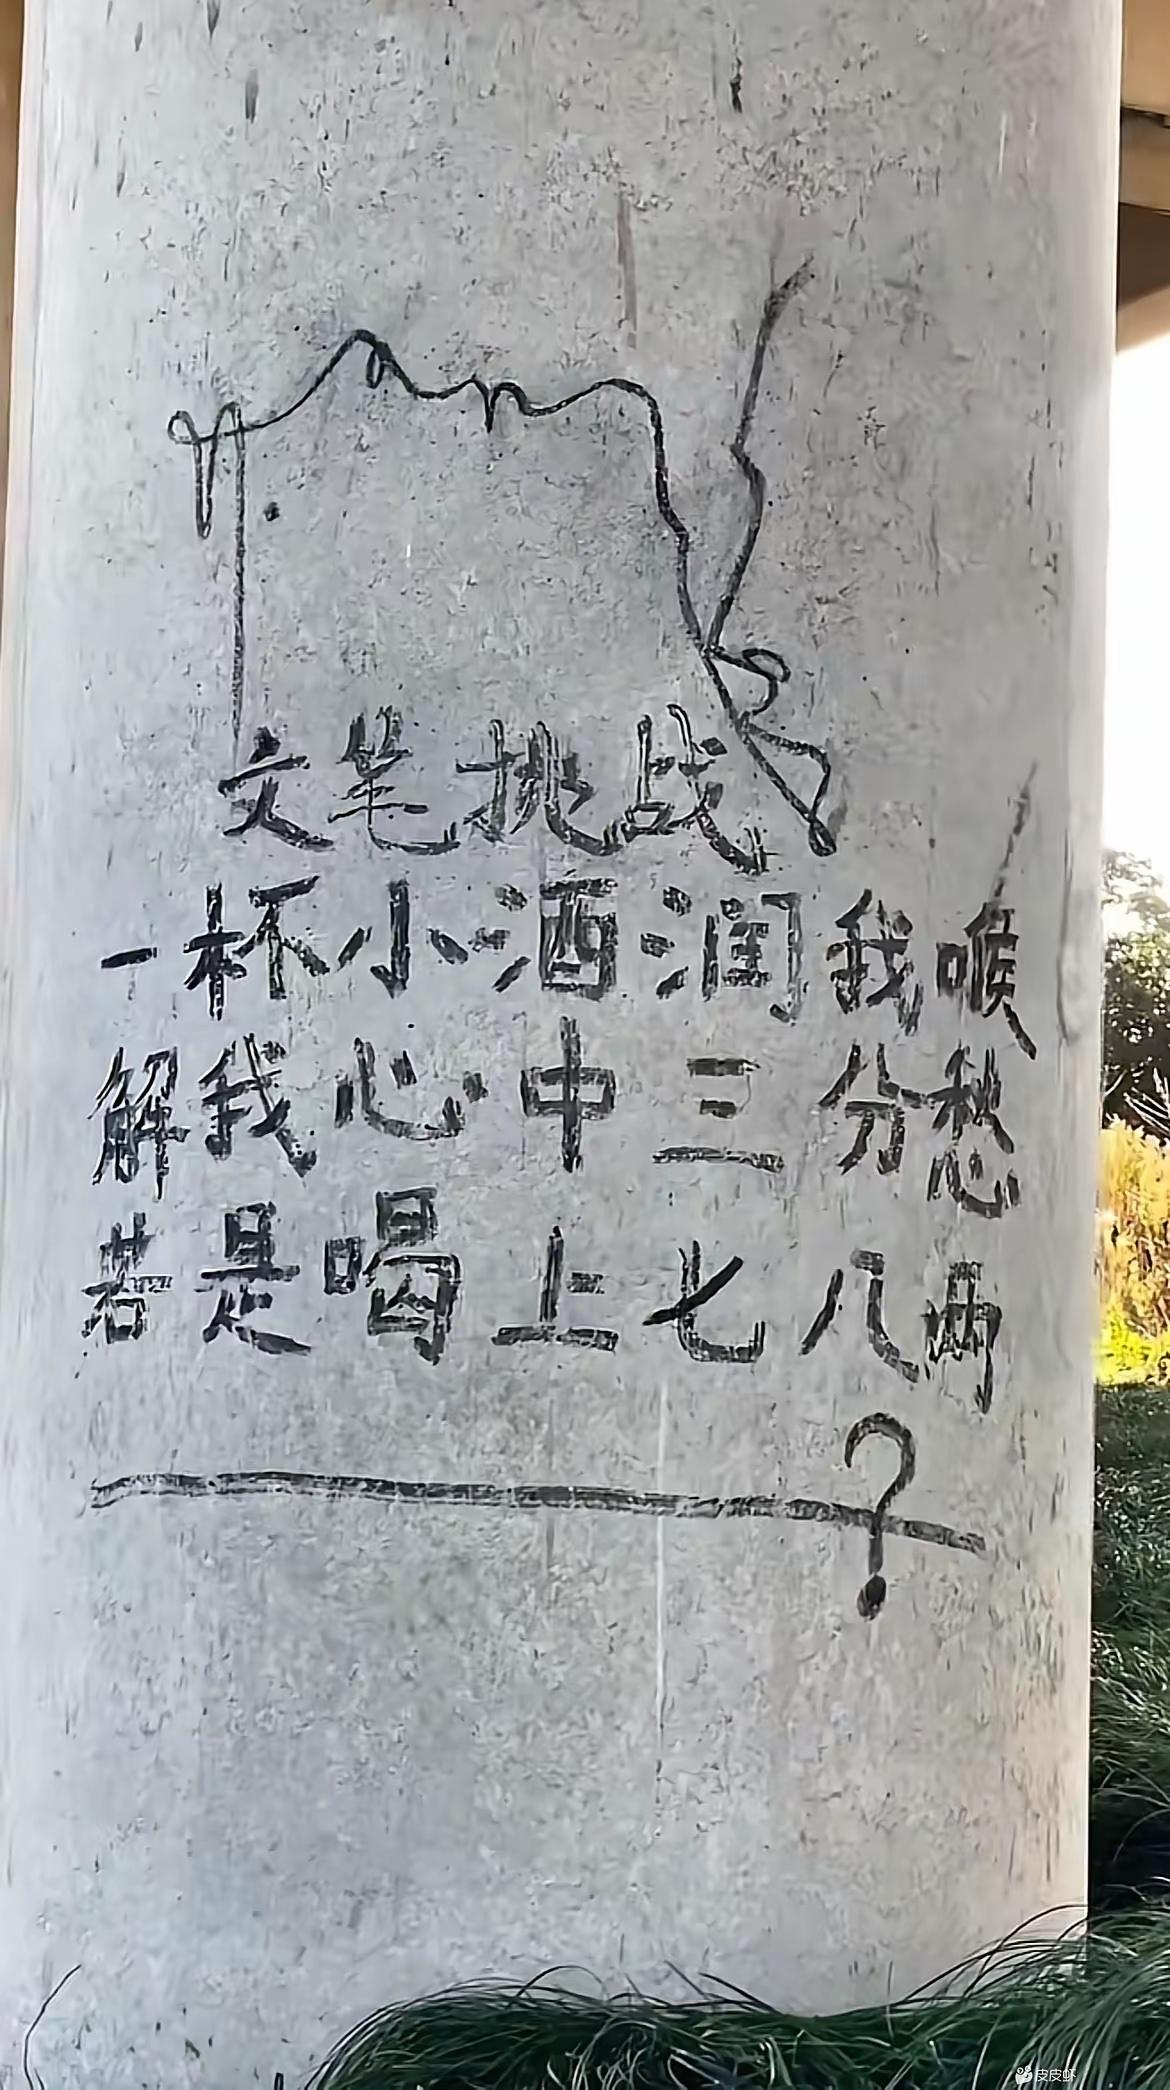 文笔挑战
一杯小酒润我喉
解我心中三分愁
若是喝上七八两
?
皮皮虾